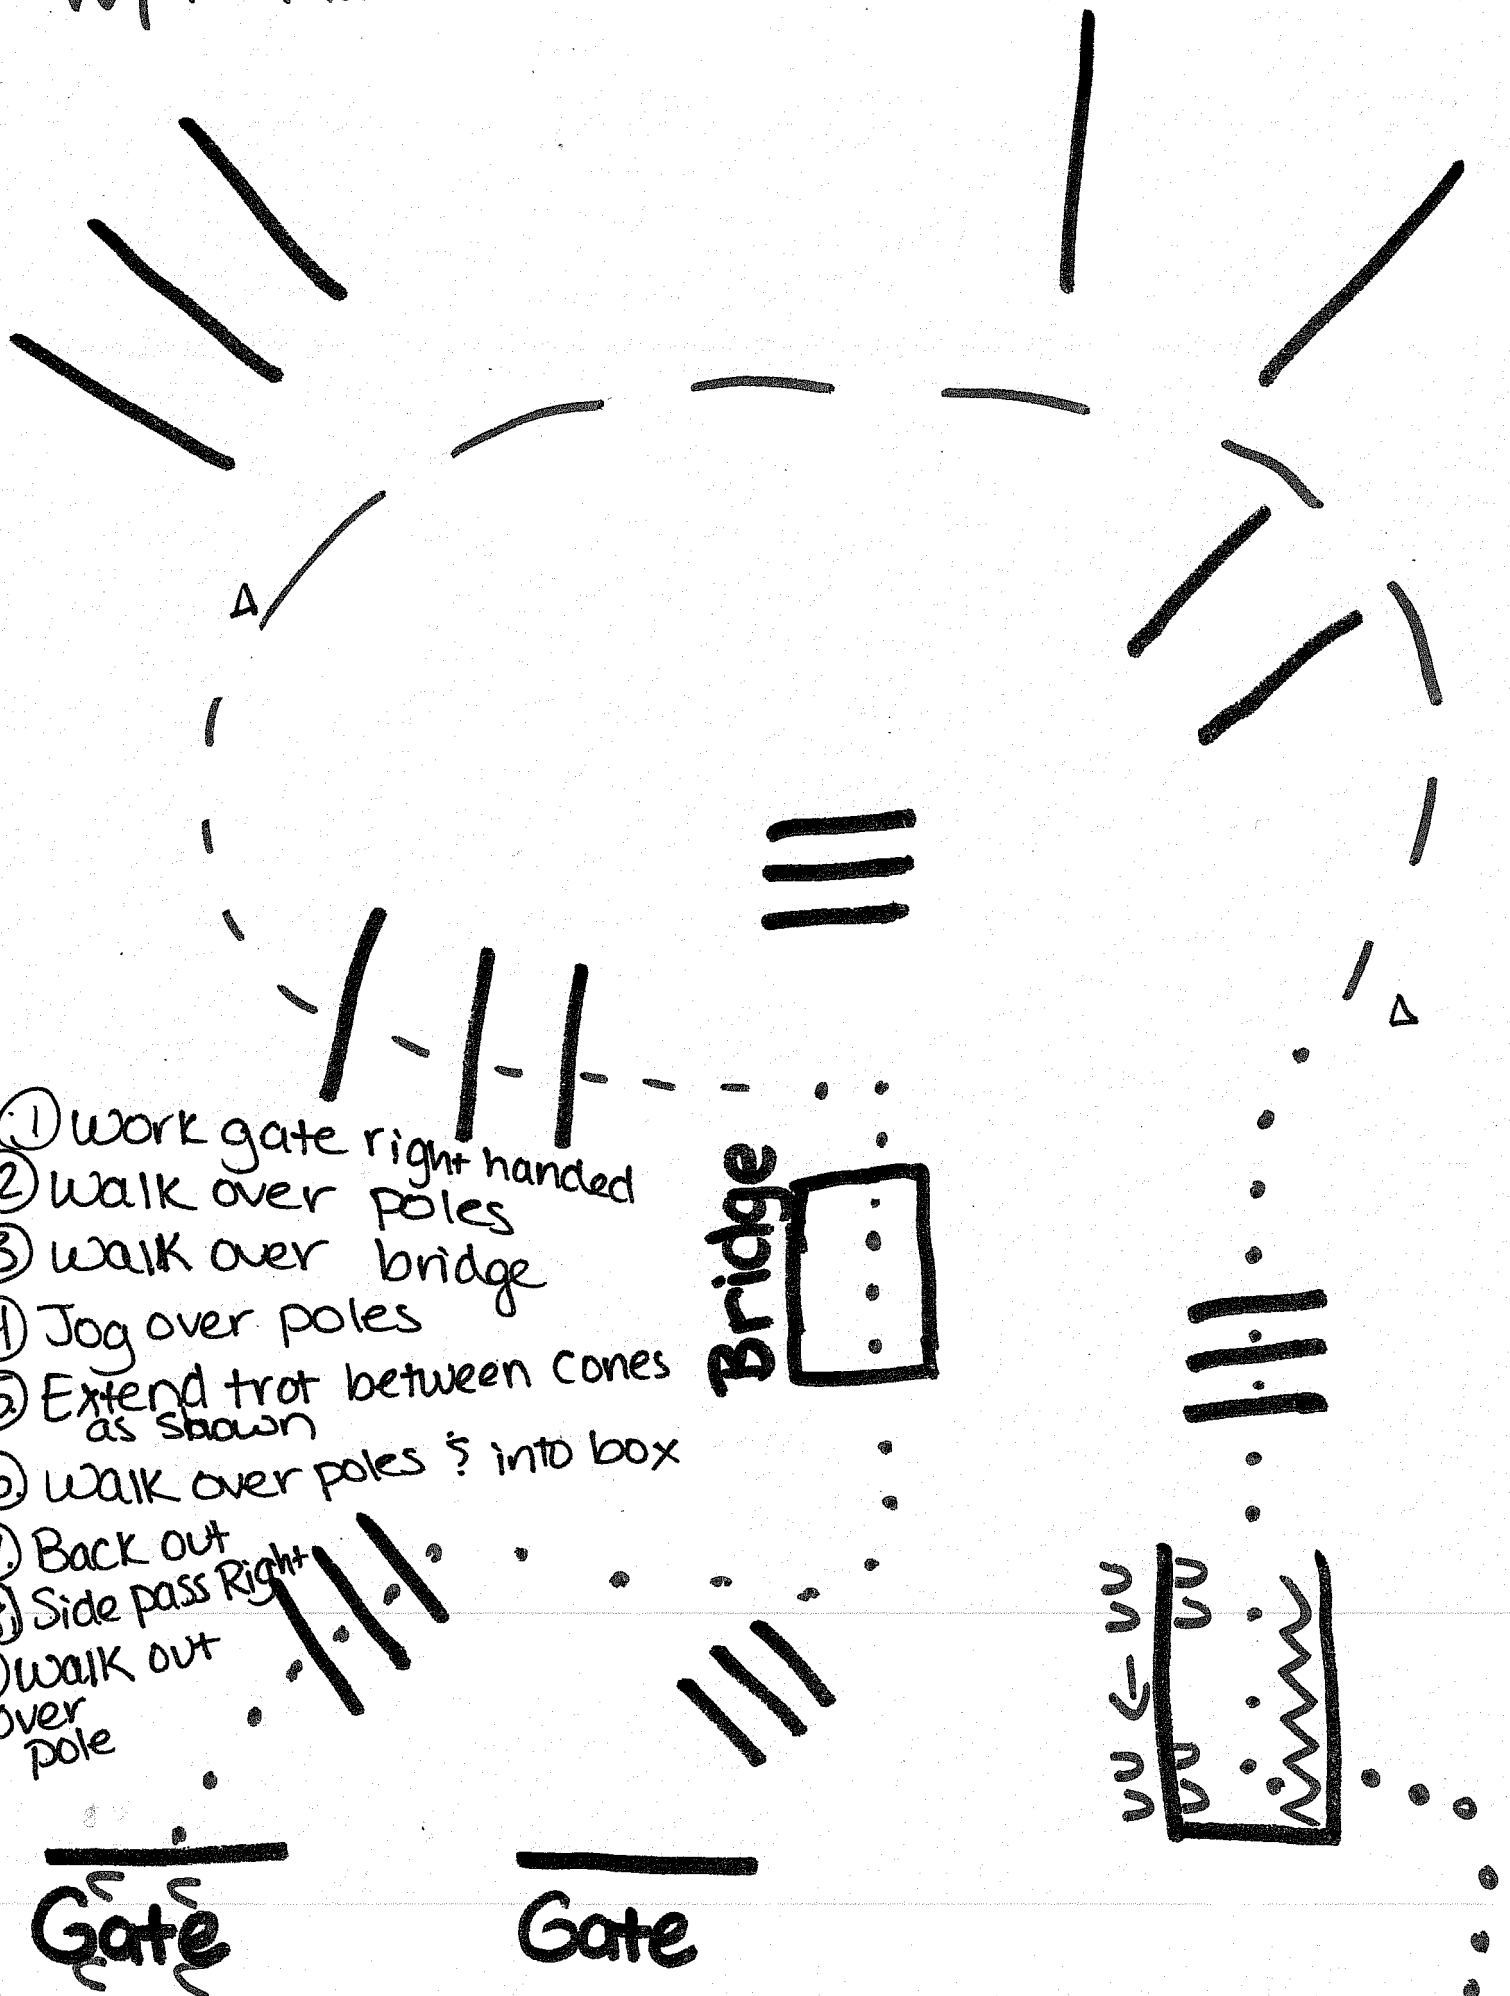 ① Work gate right handed
② Walk over poles
③ Walk over bridge
④ Jog over poles
⑤ Extend trot between cones
as shown
⑥ Walk over poles & into box
⑦ Back out
⑧ Side pass Right
Walk out
over
pole
Bridge
Gate
Gate